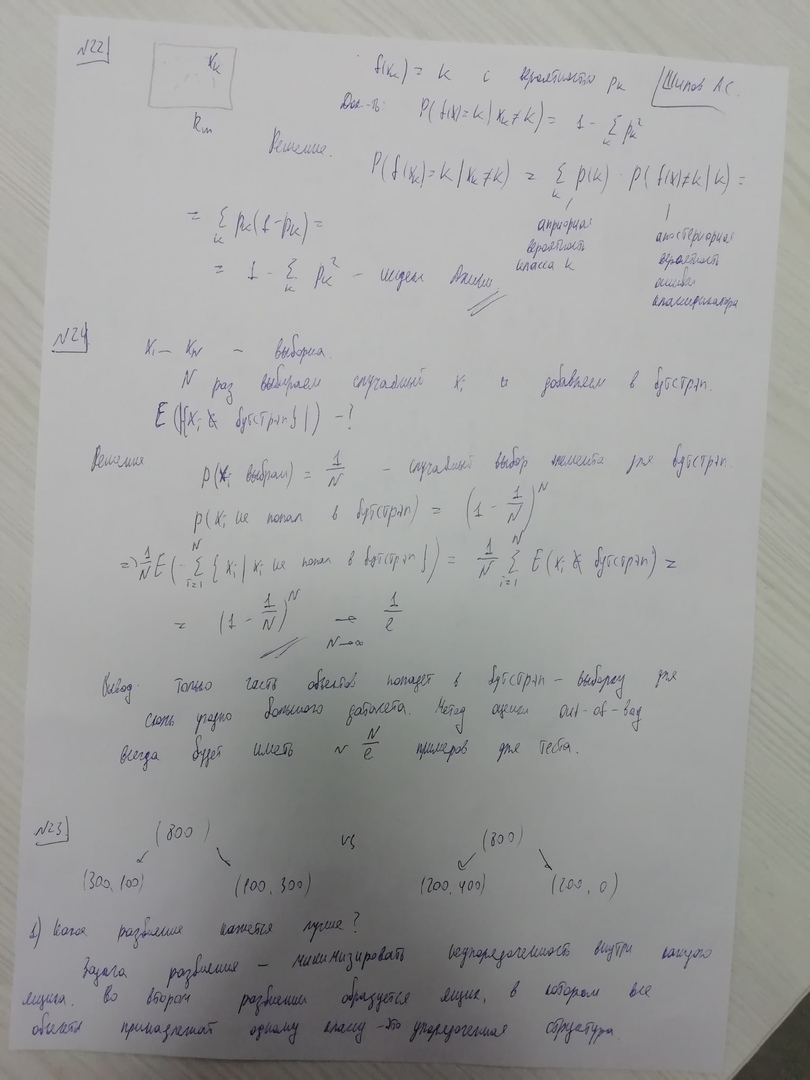 N22
x_k
R_m
f(x_k) = k с вероятностью p_k
Шипов А.С.
Док-ть: P(f(x)=k | x_k ≠ k) = 1 - Σ_k p_k²
Решение.
P(f(x_k)=k | x_k ≠ k) = Σ_k p(k) · P(f(x)≠k | k) =
априорная вероятность класса k
апостериорная вероятность ошибки классификатора
= Σ_k p_k(1-p_k) =
= 1 - Σ_k p_k² - индекс Джини.
N24
x_1 — x_N - выборка.
N раз выбираем случайный x_i и добавляем в бутстрэп.
E(|{x_i ∉ бутстрэп}|) - ?
Решение
p(x_i выбран) = 1/N - случайный выбор элемента для бутстрэп.
p(x_i не попал в бутстрэп) = (1 - 1/N)^N
=> 1/N E(Σ_{i=1}^N {x_i | x_i не попал в бутстрэп}) = 1/N Σ_{i=1}^N E(x_i ∉ бутстрэп) =
= (1 - 1/N)^N → 1/e
N→∞
Вывод: только часть объектов попадет в бутстрэп-выборку для
сколь угодно большого датасета. Метод оценки out-of-bag
всегда будет иметь ~ N/e примеров для теста.
N23
(800) vs (800)
(300, 100) (100, 300) (200, 400) (200, 0)
1) Какое разбиение кажется лучше?
Задача разбиения - минимизировать неупорядоченность внутри каждого
ящика. Во втором разбиении образуется ящик, в котором все
объекты принадлежат одному классу - это упорядоченная структура.